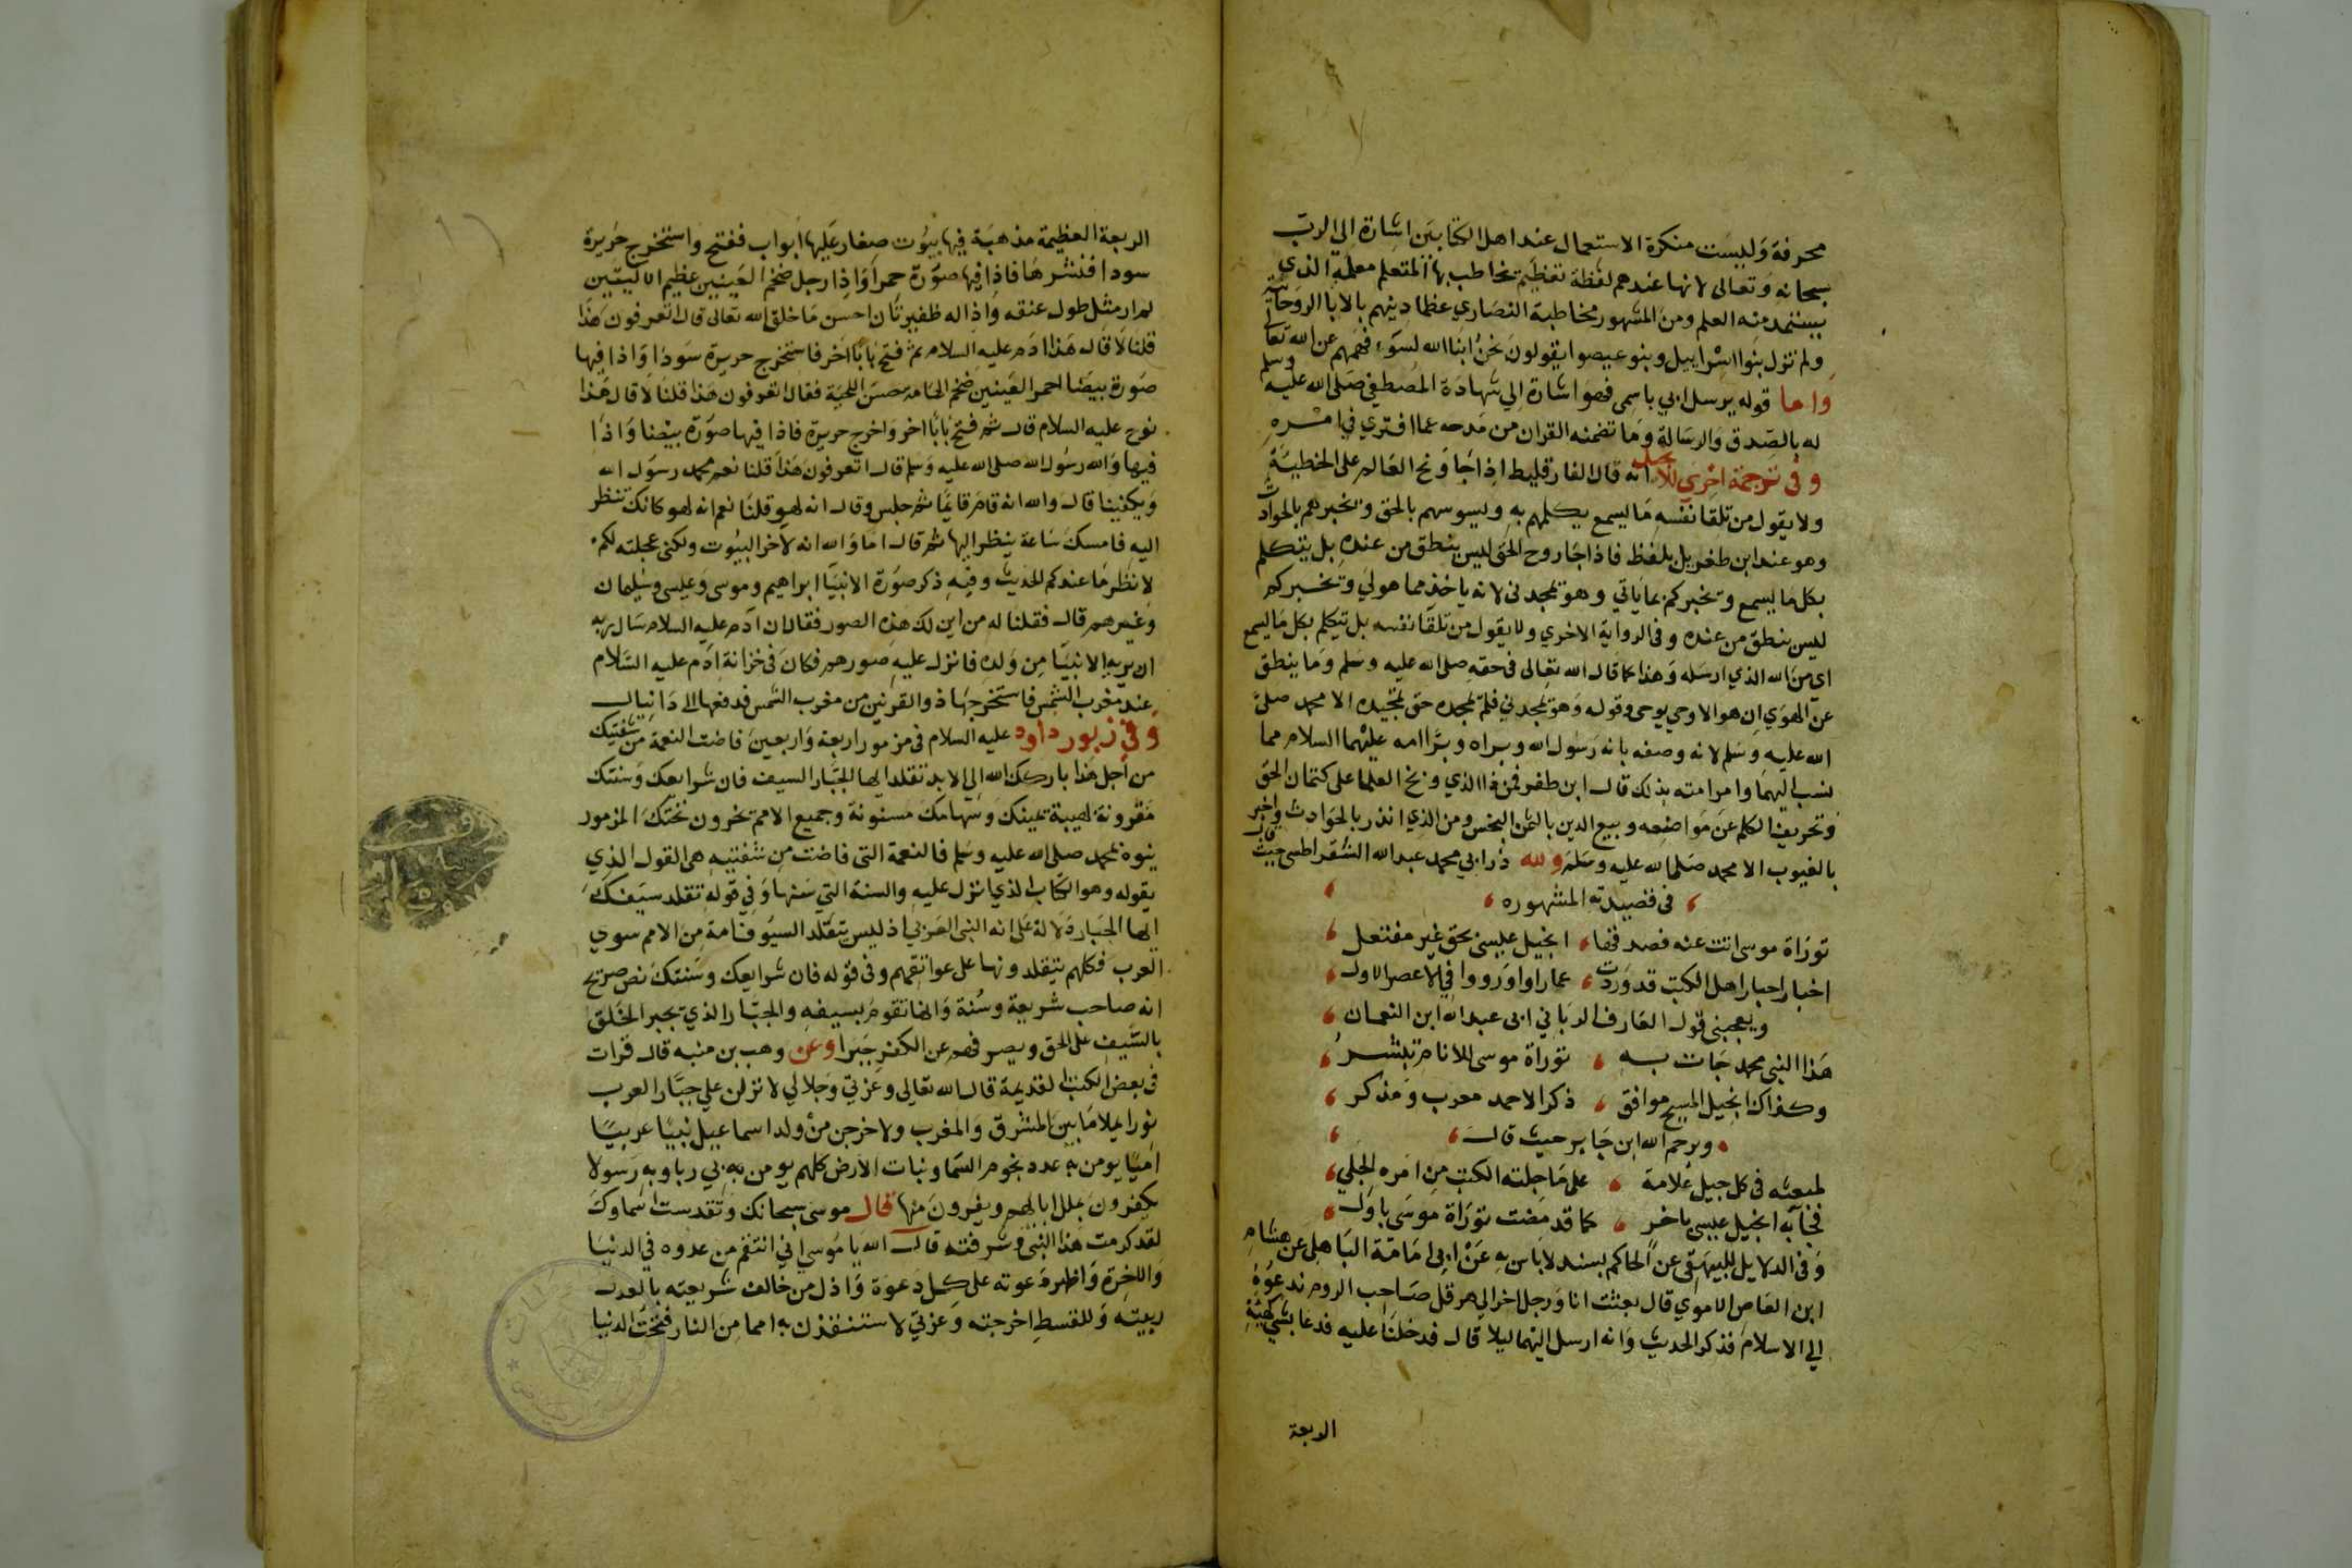 محرفة وليست منكرة الاستعمال عند اهل الكتابين اشارة الي الرب
سبحانه وتعالى لانها عندهم لفظة تعظيم تخاطب بها المتعلم معلمه الذي
يستمد منه العلم ومن المشهور مخاطبة النصاري عظما دينهم بالابا الروحانية
ولم تزل بنوا اسراييل وبنو عيصوا يقولون نحن ابنا الله لسوء فهمهم عن الله تعالى
واما قوله يرسل ابي باسمي فهو اشارة الي شهادة المصطفي صلى الله عليه وسلم
له بالصدق والرسالة وما تضمنه القران من مدحه عما افتري في امره
وفي ترجمة اخري للانجيل انه قال الفارقليط اذا جا ونح العالم على الخطيئة
ولا يقول من تلقا نفسه ما يسمع يكلمهم به ويسوسهم بالحق ويخبرهم بالحوادث
وهو عند ابن طغريل بلفظ فاذا جا روح الحق ليس ينطق من عنده بل يتكلم
بكل ما يسمع ويخبركم بما ياتي وهو يمجدني لانه ياخذ مما هو لي ويخبركم
ليس ينطق من عنده وفي الرواية الاخري ولا يقول من تلقا نفسه بل يتكلم بكل ما يسمع
اى من الله الذي ارسله وهذا كما قال الله تعالى في حقه صلى الله عليه وسلم وما ينطق
عن الهوي ان هو الا وحي يوحي وقوله وهو يمجدني فلم يمجده حق تمجيده الا محمد صلى
الله عليه وسلم لانه وصفه بانه رسول الله وبراه وبرا امه عليهما السلام مما
نسب اليهما وامر امته بذلك قال ابن ظفر فمن ذا الذي وبخ العلما على كتمان الحق
وتحريف الكلم عن مواضعه وبيع الدين بالثمن البخس ومن الذي انذر بالحوادث واخبر
بالغيوب الا محمد صلى الله عليه وسلم ولله در ابي محمد عبد الله الشقراطسي حيث قال
في قصيدته المشهوره
توراة موسى اتت عنه فصدقها انجيل عيسى بحق غير مفتعل
اخبار احبار اهل الكتب قد وردت عما راوا او رووا في الاعصر الاول
ويعجبني قول العارف الرباني ابي عبد الله ابن النعمان
هذا النبي محمد جات به توراة موسى للانام تبشر
وكذاك انجيل المسيح موافق ذكرا لاحمد معرب ومذكر
ويرحم الله ابن جابر حيث قال
لمبعثه في كل جيل علامة على ما جلته الكتب من امره الجلي
فجا به انجيل عيسى باخر كما قد مضت توراة موسى باول
وفي الدلايل للبيهقي عن الحاكم بسند لا باس به عن ابي امامة الباهلي عن هشام
ابن العاص الاموي قال بعثت انا ورجل اخر الي هرقل صاحب الروم ندعوه
الي الاسلام فذكر الحديث وانه ارسل اليهما ليلا قال فدخلنا عليه فدعا بشي كهيئة
الربعة
الربعة العظيمة مذهبة فيها بيوت صغار عليها ابواب ففتح واستخرج حريرة
سودا فنشرها فاذا فيها صورة حمرا واذا رجل ضخم العينين عظيم الاليتين
لم ار مثل طول عنقه واذا له ظفيرتان احسن ما خلق الله تعالى قال اتعرفون هذا
قلنا لا قال هذا ادم عليه السلام ثم فتح بابا اخر فاستخرج حريرة سودا واذا فيها
صورة بيضا احمر العينين ضخم الهامة حسن اللحية فقال اتعرفون هذا قلنا لا قال هذا
نوح عليه السلام قال ثم فتح بابا اخر واخرج حريرة فاذا فيها صورة بيضا واذا
فيها والله رسول الله صلى الله عليه وسلم قال اتعرفون هذا قلنا نعم محمد رسول الله
ويكفينا قال والله انه قام قايما ثم جلس وقال انه لهو قلنا نعم انه لهو كانك تنظر
اليه فامسك ساعة ينظر اليها ثم قال اما والله انه لاخر البيوت ولكني عجلته لكم
لانظر ما عندكم الحديث وفيه ذكر صورة الانبيا ابراهيم وموسى وعيسى وسليمان
وغيرهم قال فقلنا له من اين لك هذه الصور فقال ان ادم عليه السلام سال ربه
ان يريه الانبيا من ولده فانزل عليه صورهم فكان في خزانة ادم عليه السلام
عند مغرب الشمس فاستخرجها ذو القرنين من مغرب الشمس فدفعها الى دانيال
وفي زبور داود عليه السلام في مزمور اربعة واربعين فاضت النعمة من شفتيك
من اجل هذا باركك الله الي الابد تقلد ايها الجبار السيف فان شرايعك وسنتك
مقرونة لهيبة يمينك وسهامك مسنونة وجميع الامم يخرون تحتك المزمور
ينوه بمحمد صلى الله عليه وسلم فالنعمة التي فاضت من شفتيه هي القول الذي
يقوله وهو الكتاب الذي انزل عليه والسنة التي سنها وفي قوله تقلد سيفك
ايها الجبار دلالة على انه النبي العربي اذ ليس يتقلد السيوف امة من الامم سوي
العرب فكلهم يتقلدونها على عواتقهم وفي قوله فان شرايعك وسنتك نص صريح
انه صاحب شريعة وسنة وانها تقوم بسيفه والجبار الذي يجبر الخلق
بالسيف على الحق ويصرفهم عن الكفر جبرا وعن وهب بن منبه قال قرات
في بعض الكتب القديمة قال الله تعالى وعزتي وجلالي لانزلن علي جبار العرب
نورا يملا ما بين المشرق والمغرب ولاخرجن من ولد اسماعيل نبيا عربيا
اميا يومن به عدد نجوم السما ونبات الارض كلهم يومن به بي ربا وبه رسولا
يكفرون بملل ابايهم ويفرون منها قال موسى سبحانك وتقدست اسماوك
لقد كرمت هذا النبي وشرفته قال الله يا موسى اني انتقم من عدوه في الدنيا
والاخرة واظهر دعوته على كل دعوة واذل من خالف شريعته بالعدل
ربيته وللقسط اخرجته وعزتي لاستنقذن به امما من النار فتحت الدنيا